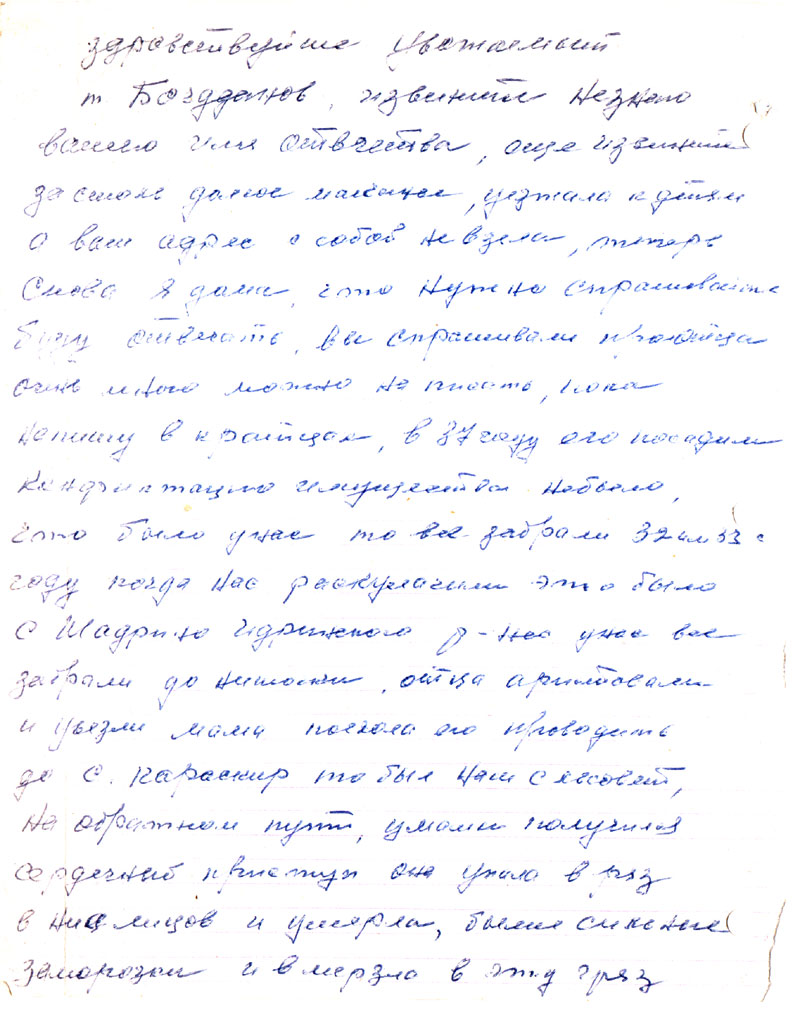 здравствуйте Уважаемый
т. Богдданов, извинити Незнаю
вашего имя отвчества, още извинити
за столь долгое малчание, уезжала к дітям
а ваш адрес с собой не взела, типерь
Снова я дома, что Нужно спрашивайте
буду отвечать, вы спрашивали про отца
очнь много можно на писать, пока
напишу в кратцах, в 37 году его посадили
Канфискации имущества небыло,
что было уже то все забрали 32 или 33
году когда нас раскулачили это было
с Шадрино Идринского р-на уже все
забрали до ниточки, отца ариштовали
и увезли мама поехала его проводить
до с. Караскыр то был наш с совет,
на обратном пути, у мамы получился
сердечный приступ она упала в гряз
в низ лицов и умерла, были сильные
заморозки и вмерзла в эту гряз